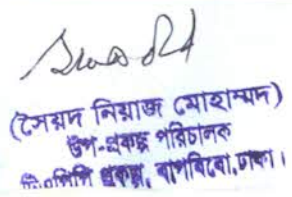 (সৈয়দ নিয়াজ মোহাম্মদ)
উপ-প্রকল্প পরিচালক
প্রকল্প, বাপবিবো, ঢাকা।